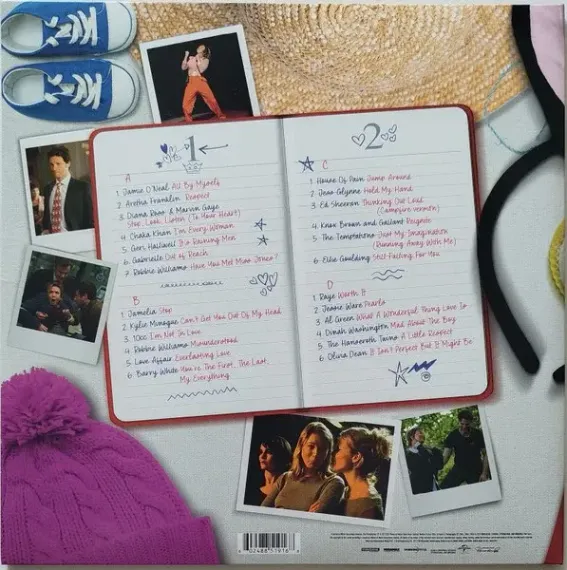 1
A
1. Jamie O'Neal All By Myself
2. Aretha Franklin Respect
3. Diana Ross & Marvin Gaye
Stop, Look, Listen (To Your Heart)
4. Chaka Khan I'm Every Woman
5. Geri Halliwell It's Raining Men
6. Gabrielle Out of Reach
7. Robbie Williams Have You Met Miss Jones?
B
1. Jamelia Stop
2. Kylie Minogue Can't Get You Out Of My Head
3. 10cc I'm Not In Love
4. Robbie Williams Misunderstood
5. Love Affair Everlasting Love
6. Barry White You're The First, The Last,
My Everything
2
C
1. House Of Pain Jump Around
2. Jess Glynne Hold My Hand
3. Ed Sheeran Thinking Out Loud
(Campfire Version)
4. Knox Brown and Gallant Reignite
5. The Temptations Just My Imagination
(Running Away With Me)
6. Ellie Goulding Still Falling For You
D
1. Raye Worth It
2. Jessie Ware Pearls
3. Al Green What A Wonderful Thing Love Is
4. Dinah Washington Mad About The Boy
5. The Hanseroth Twins A Little Respect
6. Olivia Dean It Isn't Perfect But It Might Be